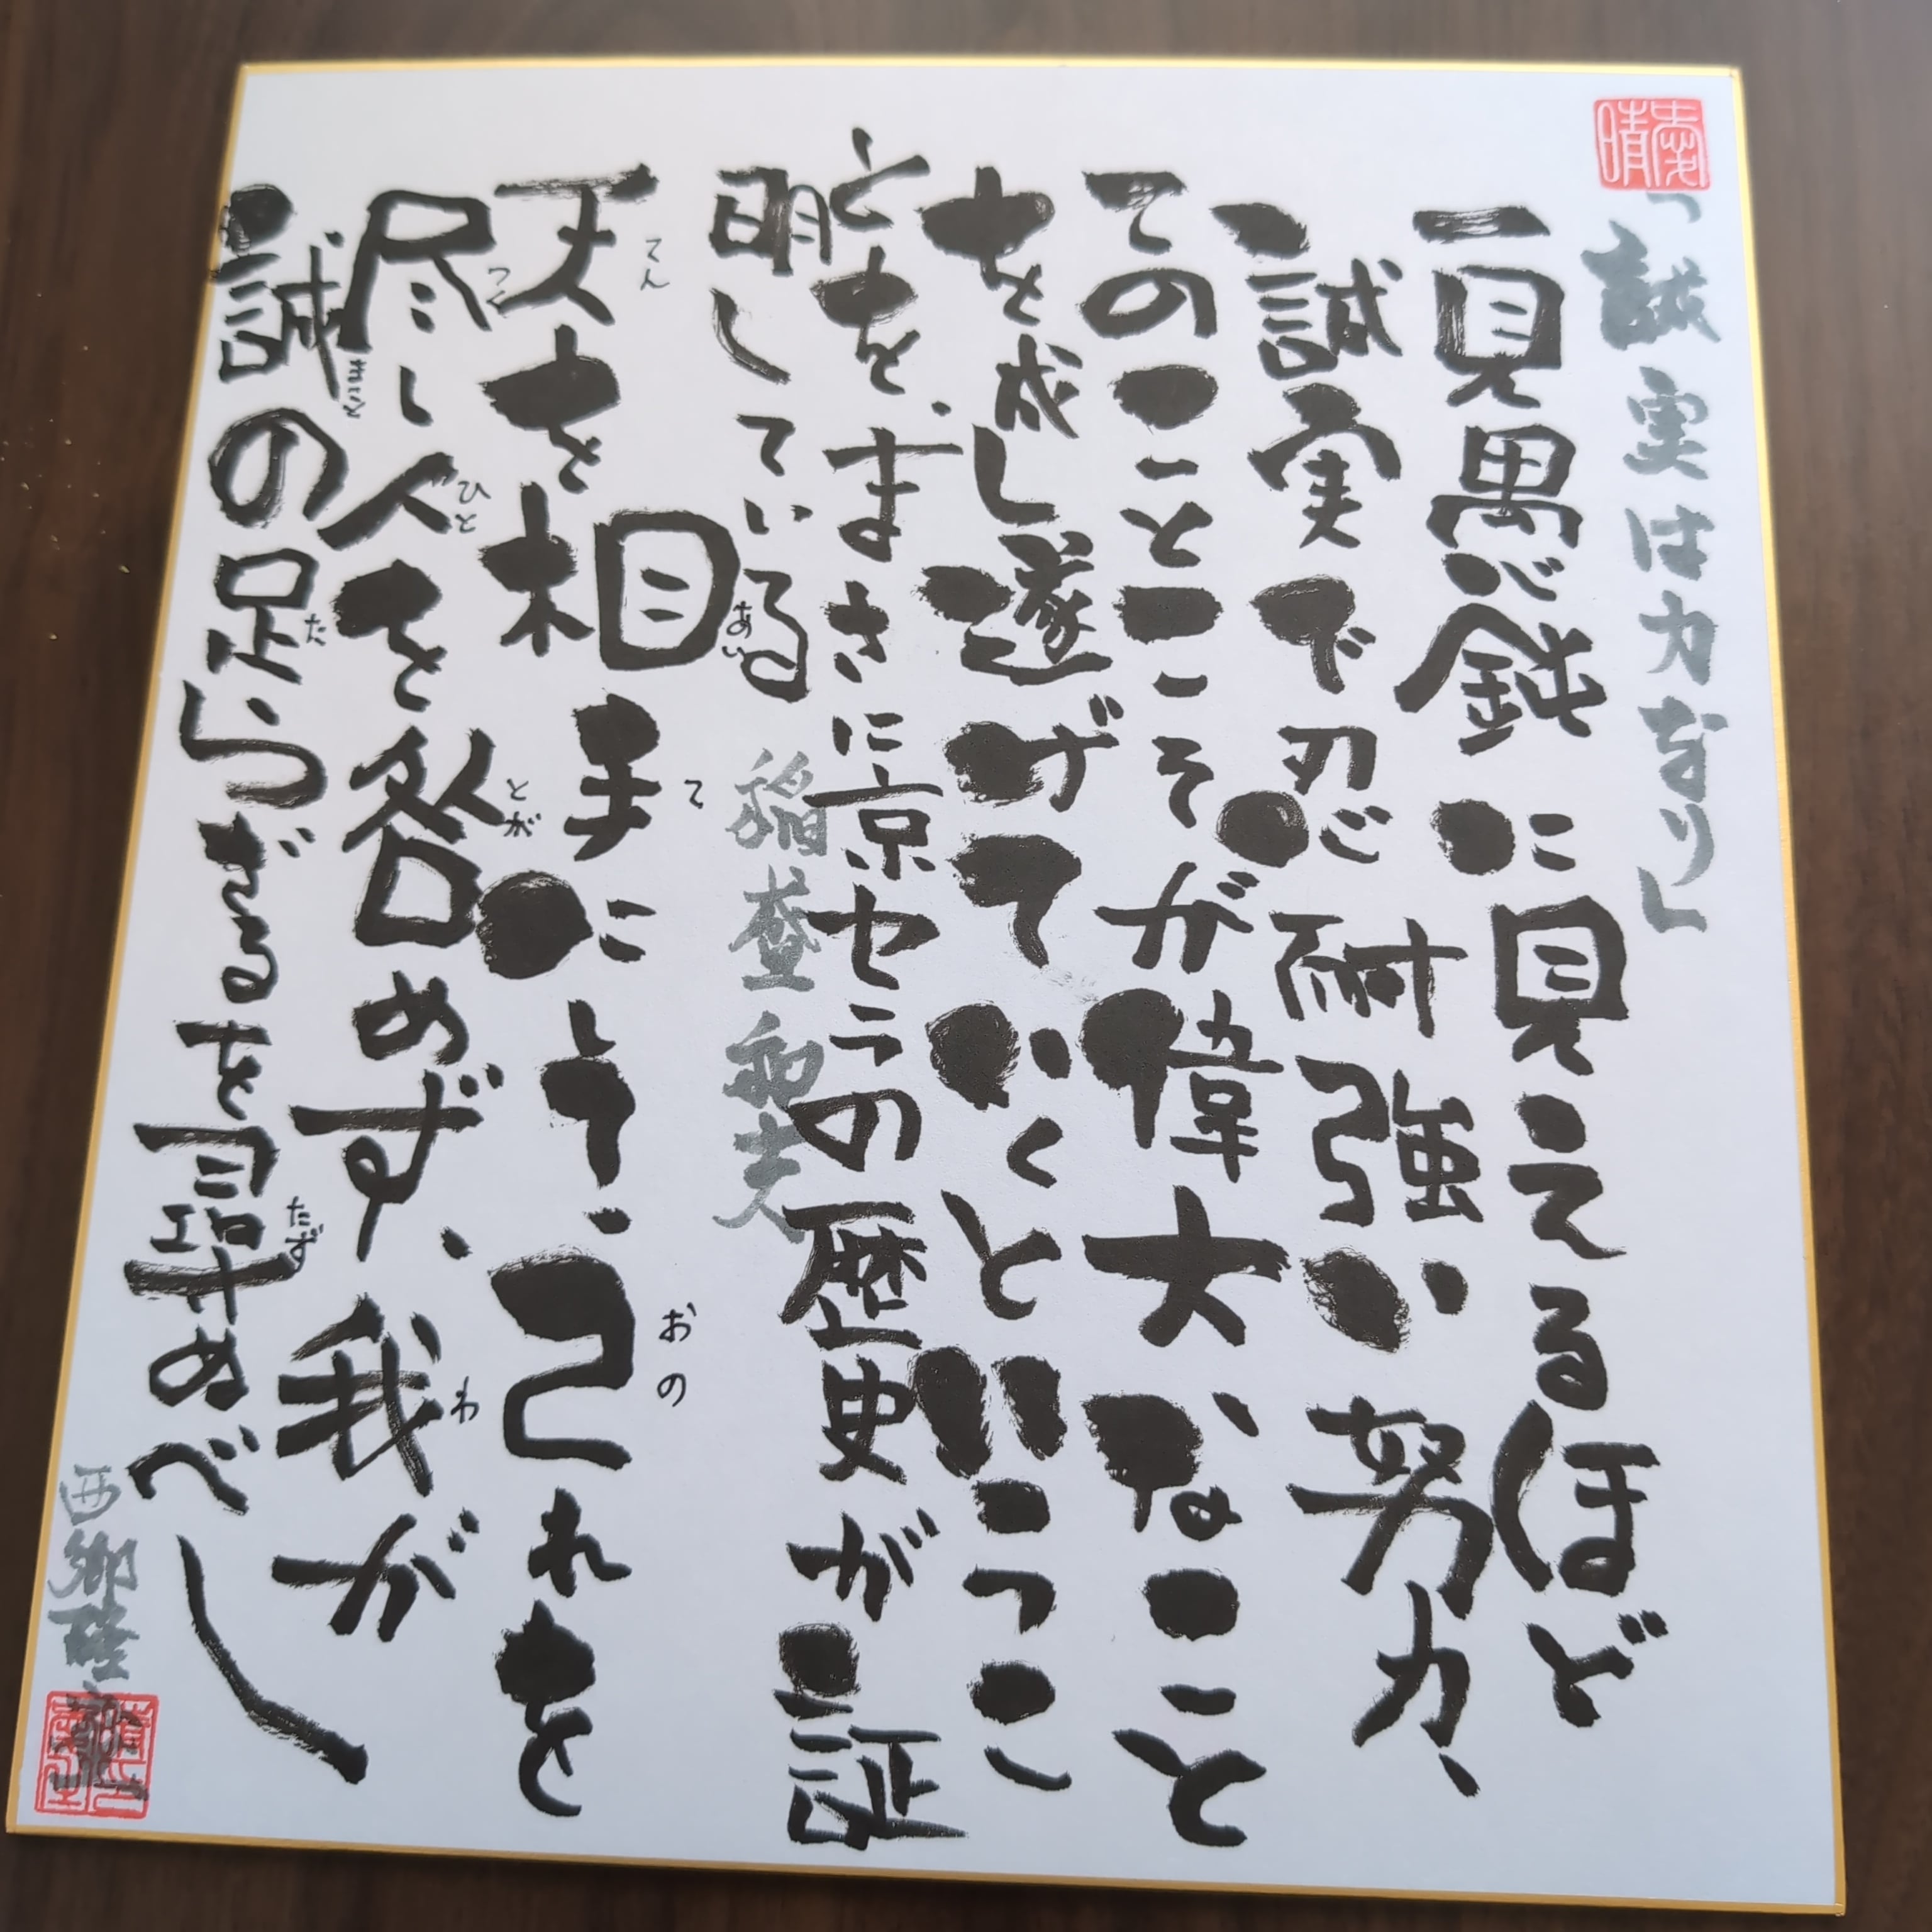 「誠実は力なり」
一見愚鈍に見えるほど
誠実で忍耐強い努力、
そのことこそが偉大なこと
を成し遂げていくというこ
とを、まさに京セラの歴史が証
明している
稲盛和夫
てん あい て おの
天を相手にして、己れを
つく ひと とが わ
尽し人を咎めず、我が
まこと た たず
誠の足らざるを尋ぬべし
西郷隆盛